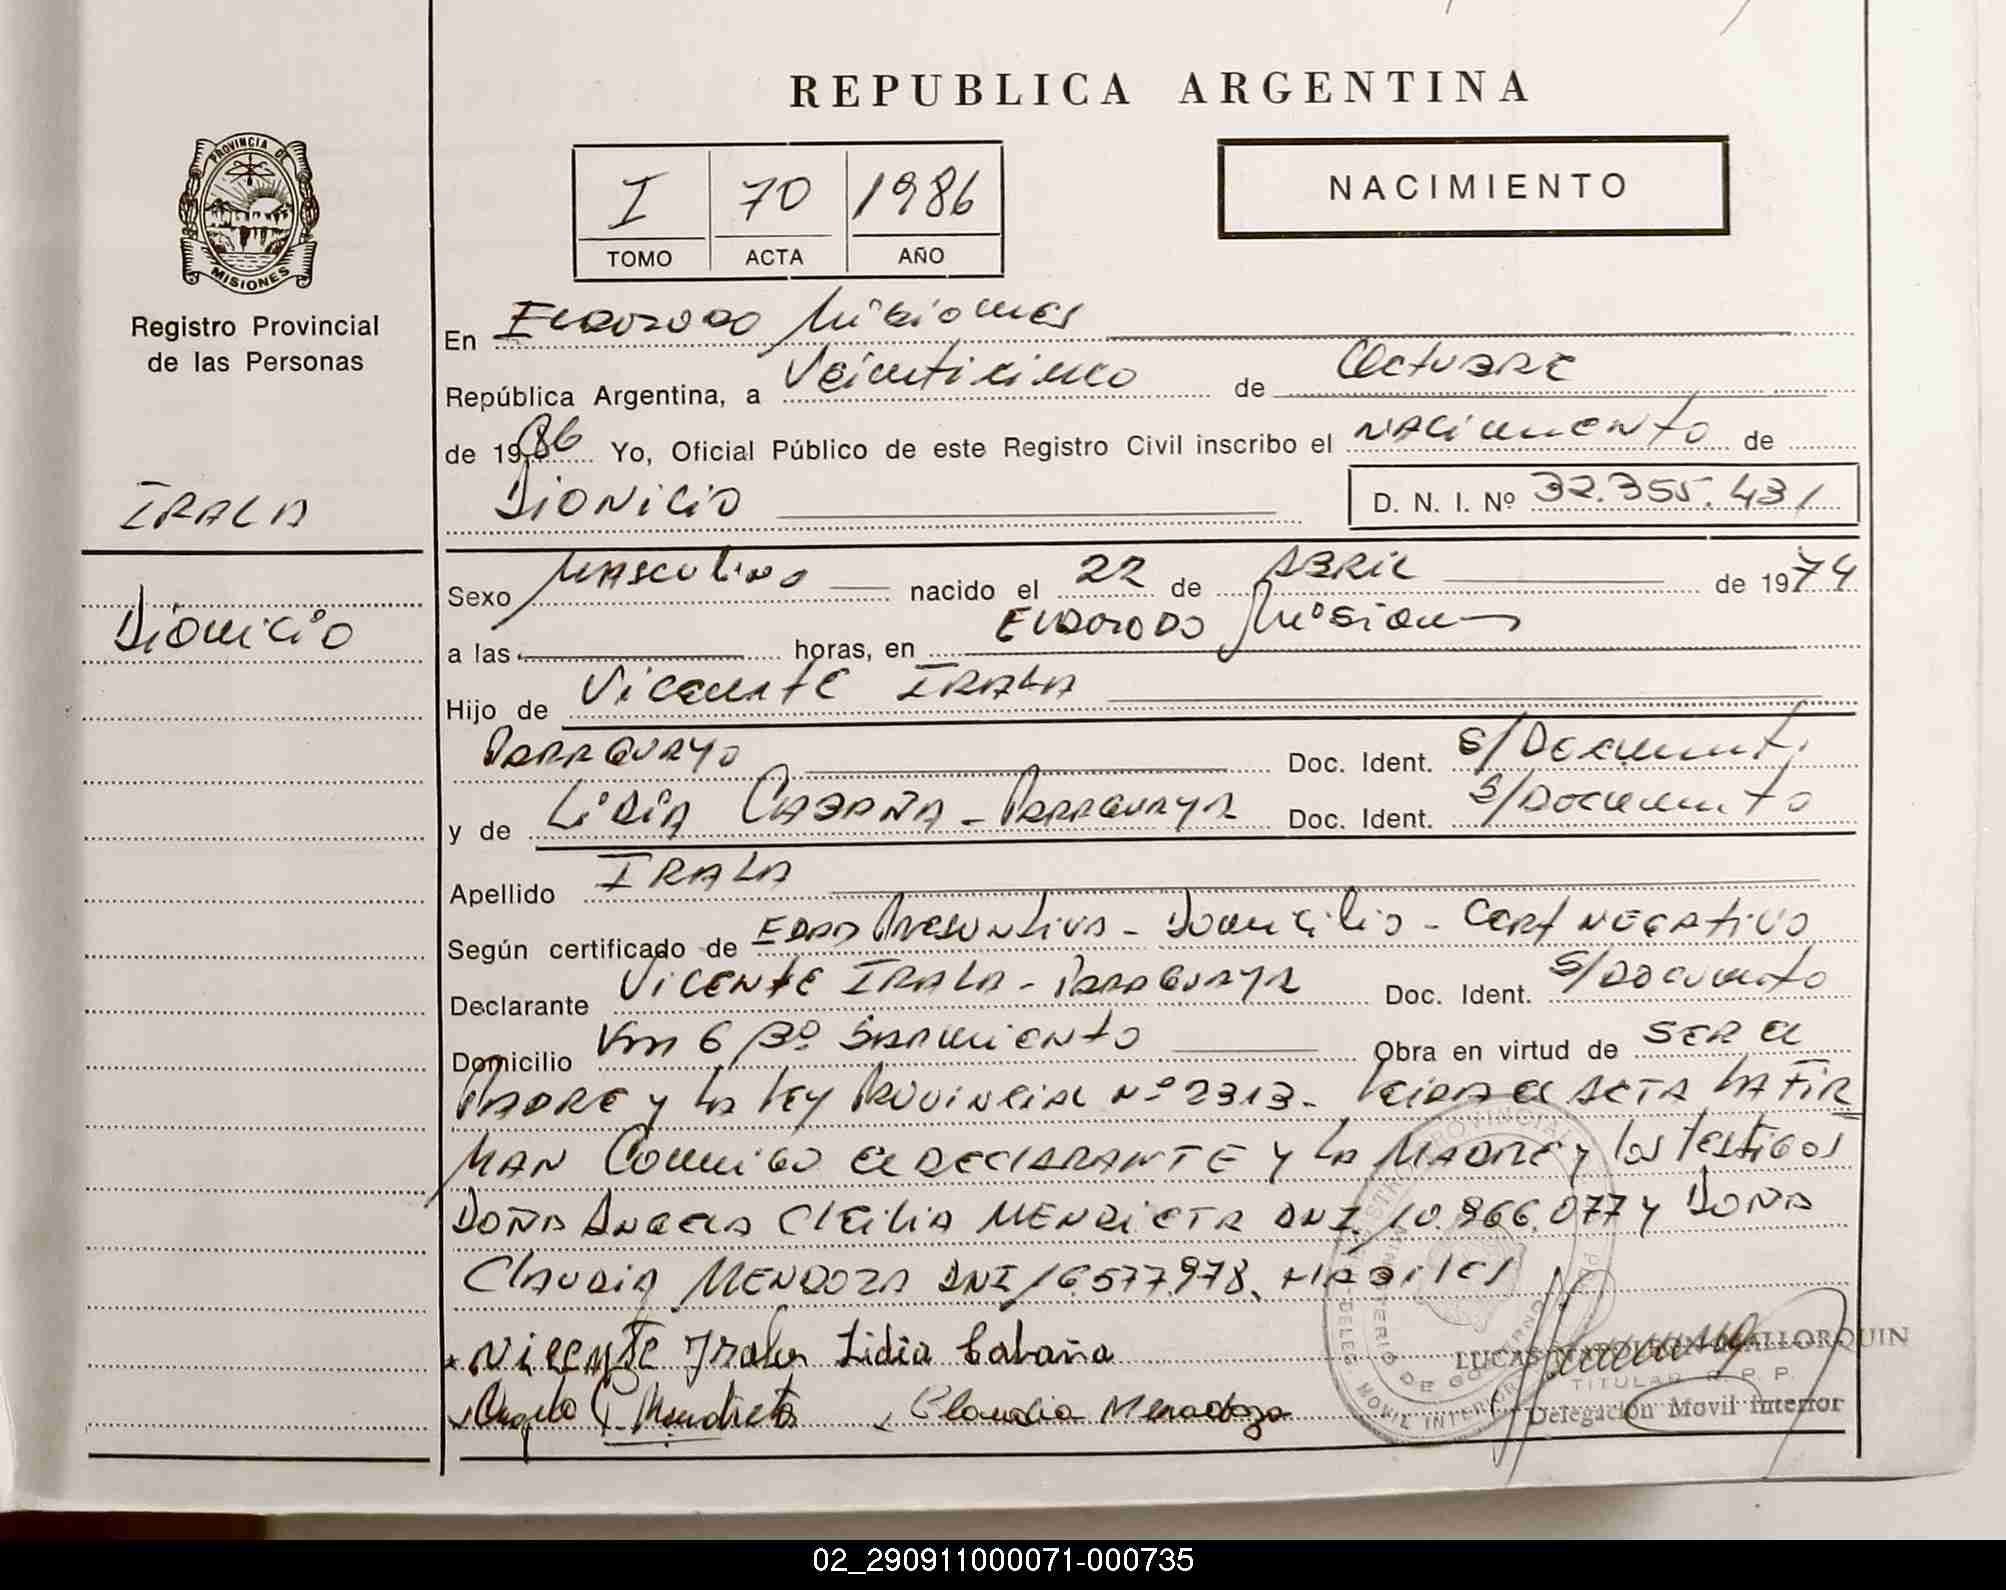 REPUBLICA ARGENTINA
PROVINCIA DE
MISIONES
Registro Provincial
de las Personas
IRALA
Dionicio
I 70 1986
TOMO ACTA AÑO
NACIMIENTO
En Eldorado Misiones
República Argentina, a Veinticinco de Octubre
de 1986 Yo, Oficial Público de este Registro Civil inscribo el nacimiento de
Dionicio D. N. I. Nº 32.355.431
Sexo Masculino nacido el 22 de Abril de 1974
a las horas, en Eldorado Misiones
Hijo de Vicente IRALA
Paraguayo Doc. Ident. S/Documento
y de Lidia Cabaña - Paraguaya Doc. Ident. S/Documento
Apellido IRALA
Según certificado de Edad Presuntiva - Domicilio - Cert Negativo
Declarante Vicente Irala - Paraguaya Doc. Ident. S/Documento
Domicilio Km 6 Bº Sarmiento Obra en virtud de ser el
Padre y la Ley Provincial Nº 2313. Leida el Acta la fir
man Conmigo el declarante y la Madre y los testigos
Doña Angela Cecilia Mendieta DNI. 10.866.077 y Doña
Claudia Mendoza DNI 16.577.978. Habiles
Vicente Irala Lidia Cabaña
Angela C. Mendieta Claudia Mendoza
LUCAS MALLORQUIN
TITULAR R. P. P.
Delegación Movil Interior
02_290911000071-000735